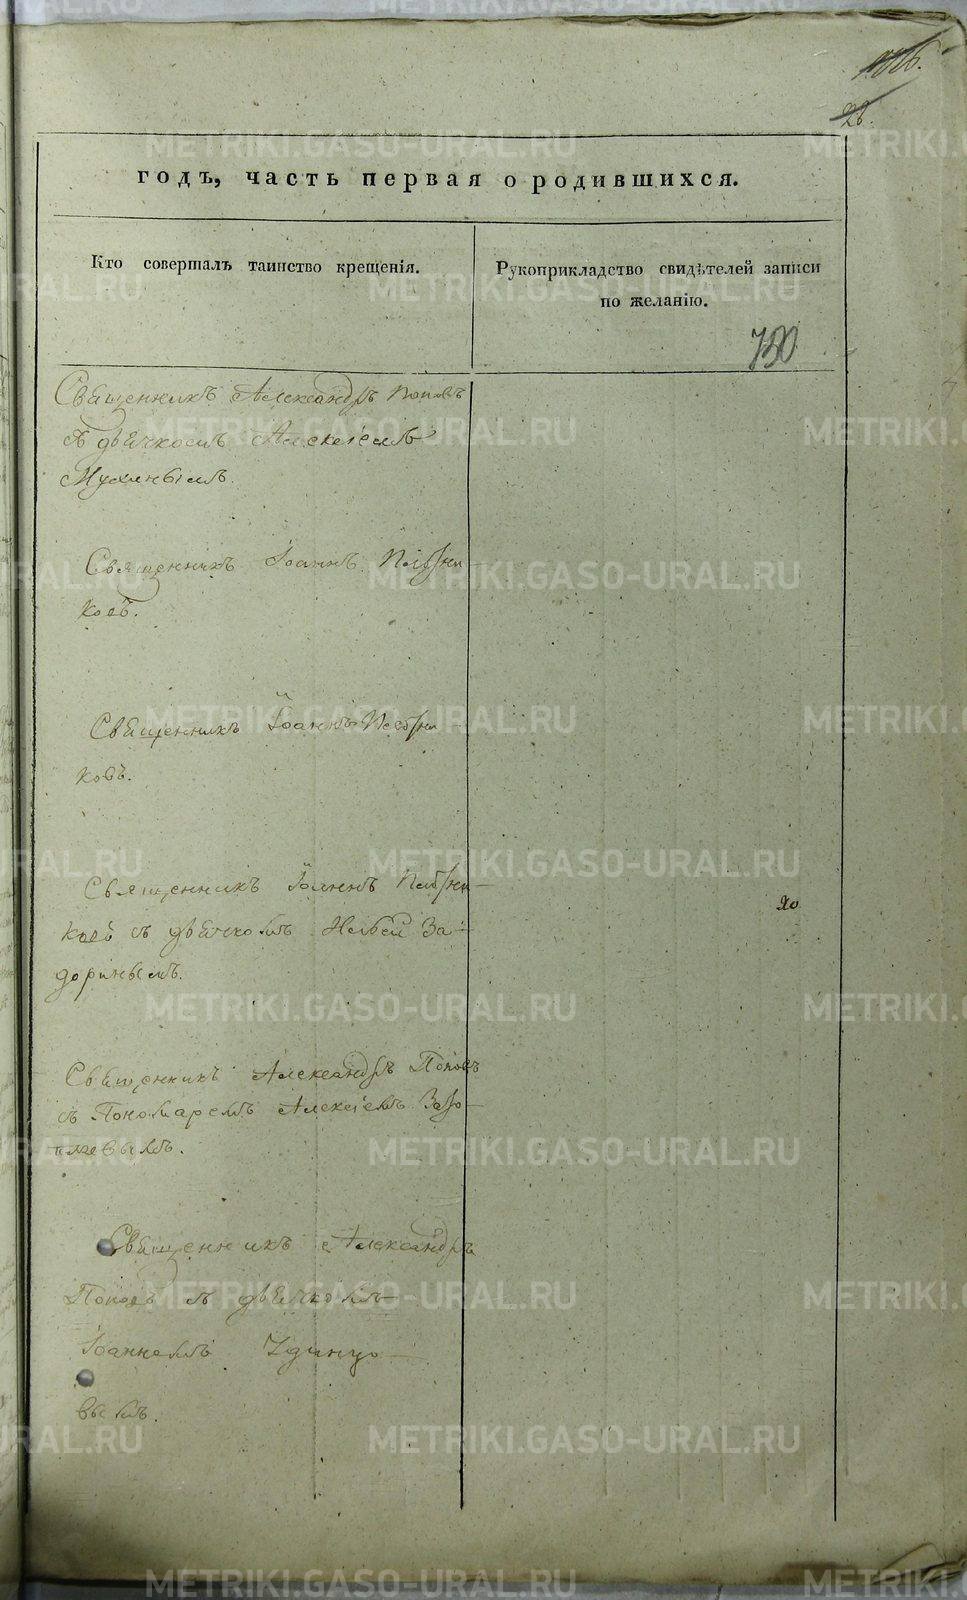 28.
годъ, часть первая о родившихся.
Кто совершалъ таинство крещенія.
Рукоприкладство свидѣтелей записи
по желанію.
730
Священникъ Александръ Поповъ
съ дьячкомъ Алексіемъ
Мухинымъ.
Священникъ Іоаннъ
ковъ.
Священникъ Іоаннъ
ковъ.
Священникъ Іоаннъ
20
ковъ съ дьячкомъ За-
доринымъ.
Священникъ Александръ Поповъ
съ Пономаремъ Алексіемъ
Священникъ Александръ
Поповъ съ дьячкомъ
Іоанномъ Удинцо-
вымъ.
METRIKI.GASO-URAL.RU